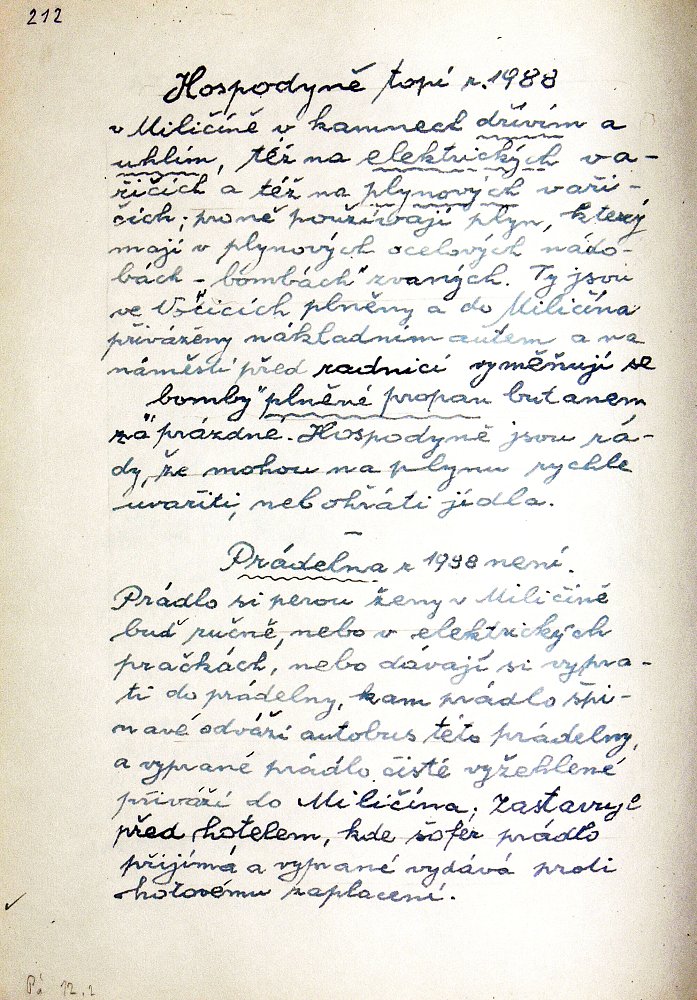 212
Hospodyně topí r. 1988
v Miličíně v kamnech dřívím a
uhlím, též na elektrických va-
řičích a též na plynových vaři-
čích; proně používají plyn, který
mají v plynových ocelových nádo-
bách - „bombách" zvaných. Ty jsou
ve Včicích plněny a do Miličína
přiváženy nákladním autem a na
náměstí před radnicí vyměňují se
„bomby" plněné propan butanem
za prázdné. Hospodyně jsou rá-
dy, že mohou na plynu rychle
uvařiti, neb ohřáti jídla.
–
Prádelna r 1988 není.
Prádlo si perou ženy v Miličíně
buď ručně, nebo v elektrických
pračkách, nebo dávají si vypra-
ti do prádelny, kam prádlo špi-
navé odváží autobus této prádelny,
a vyprané prádlo čisté vyžehlené
přiváží do Miličína; zastavuje
před hotelem, kde šofér prádlo
přijímá a vyprané vydává proti
hotovému zaplacení.
Pá 12.2